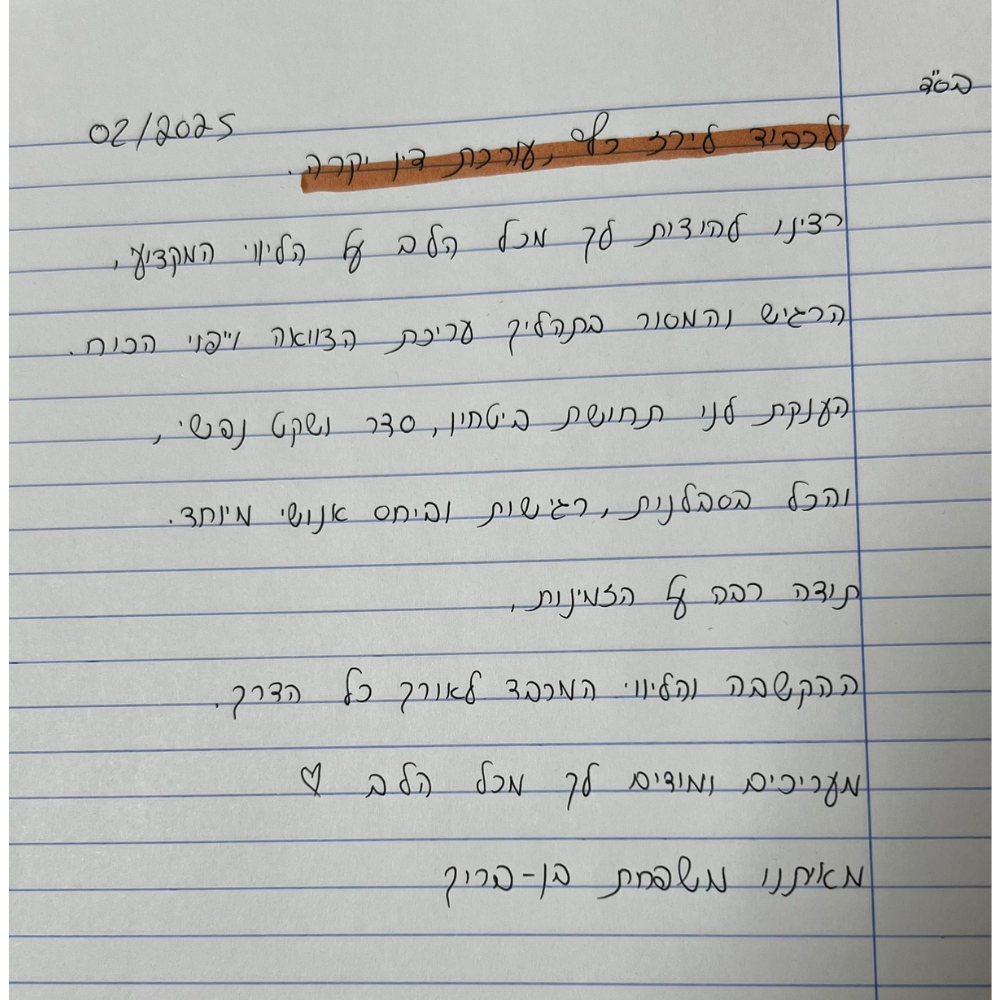 בס"ד
02/2025
לכבוד לירז כלף, עורכת דין יקרה.
רצינו להודות לך מכל הלב על הליווי המקצועי,
הרגיש והמסור בתהליך עריכת הצוואה וייפוי הכוח.
הענקת לנו תחושת ביטחון, סדר ושקט נפשי,
והכל בסבלנות, רגישות וביחס אנושי מיוחד.
תודה רבה על הזמינות,
ההקשבה והליווי המכבד לאורך כל הדרך.
מעריכים ומודים לך מכל הלב ♡
מאיתנו משפחת בן-ברוך